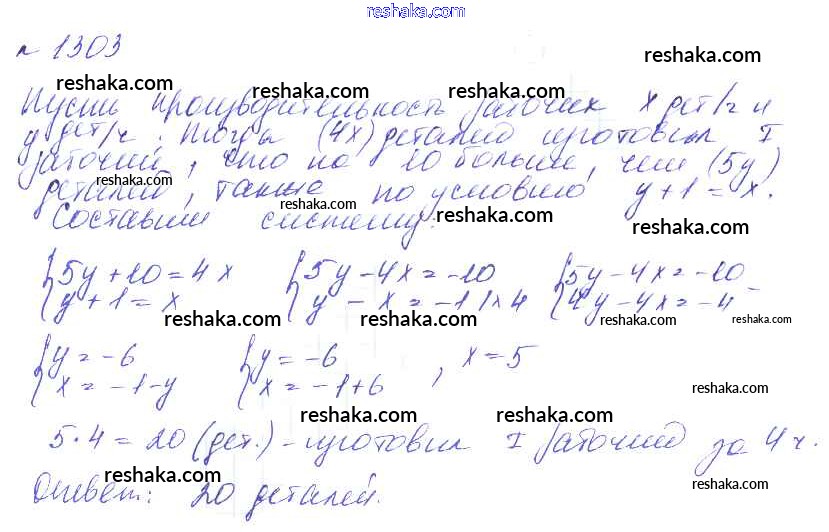 reshaka.com
№ 1303
reshaka.com
reshaka.com reshaka.com reshaka.com
Пусть производительность рабочих x дет/ч и
y дет/ч. Тогда (4x) деталей изготовил I
рабочий, что на 10 больше, чем (5y)
reshaka.com reshaka.com
деталей, также по условию y+1=x.
reshaka.com reshaka.com
Составим систему:
reshaka.com
{5y+10=4x {5y-4x=-10 {5y-4x=-10 -
{y+1=x {y-x=-1 |·4 {4y-4x=-4
reshaka.com reshaka.com reshaka.com reshaka.com
{y=-6 {y=-6 , x=5
{x=-1-y {x=-1+6
reshaka.com
reshaka.com reshaka.com
5·4=20 (дет.) - изготовил I рабочий за 4 ч.
reshaka.com reshaka.com
Ответ: 20 деталей.
reshaka.com